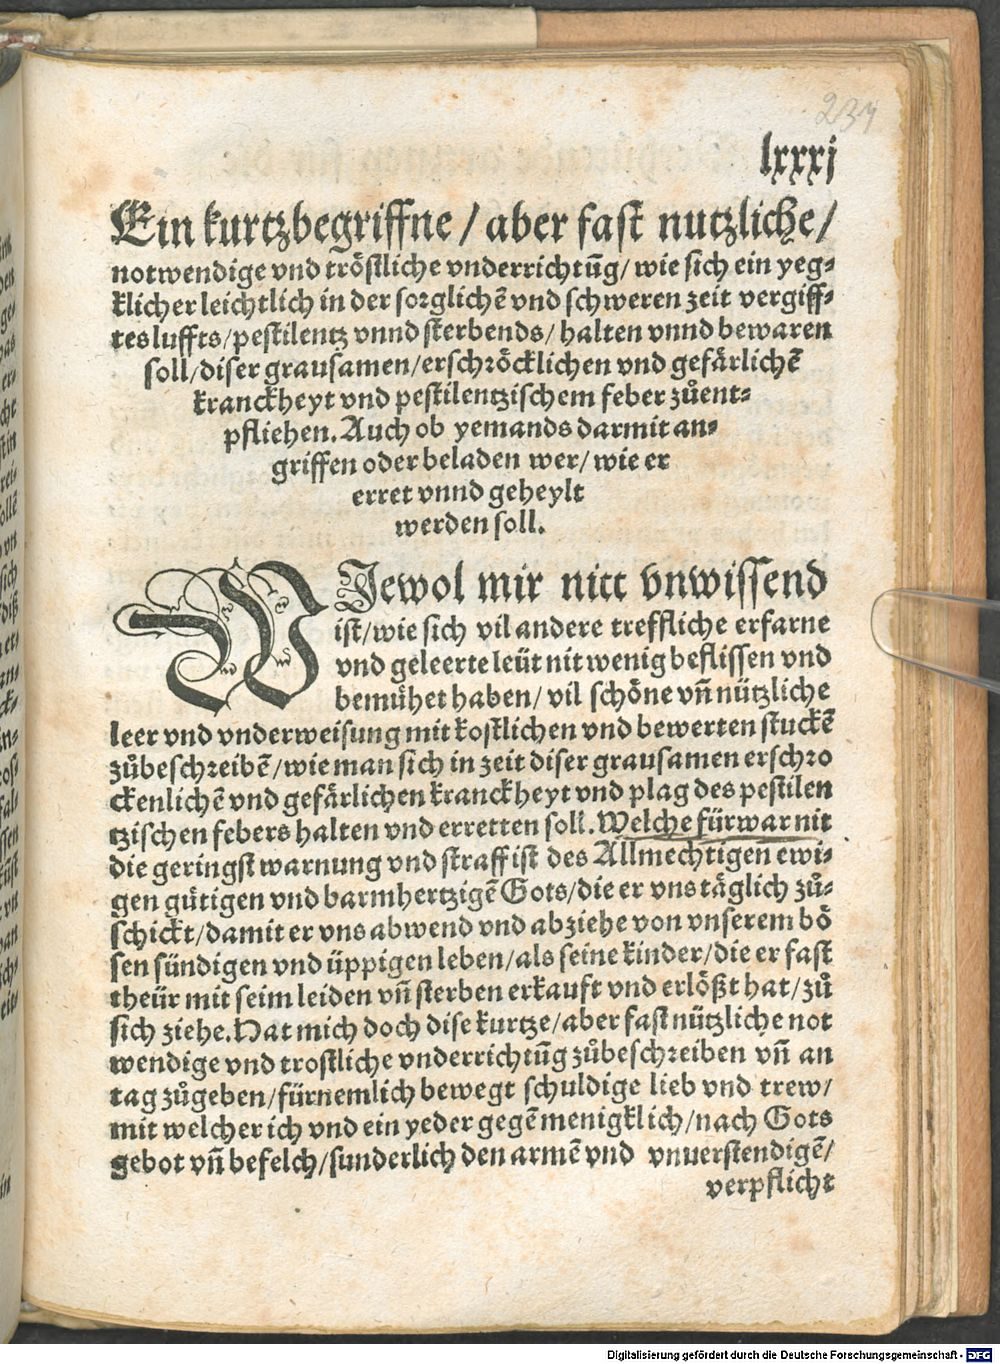 234
lxxxj
Ein kurtzbegriffne / aber fast nutzliche /
notwendige vnd tröstliche vnderrichtūg / wie sich ein yeg⸗
klicher leichtlich in der sorglichē vnd schweren zeit vergiff⸗
tes luffts / pestilentz vnnd sterbends / halten vnnd bewaren
soll / diser grausamen / erschröcklichen vnd gefärlichē
kranckheyt vnd pestilentzischem feber zůent⸗
pfliehen. Auch ob yemands darmit an⸗
griffen oder beladen wer / wie er
erret vnnd geheylt
werden soll.
WJewol mir nitt vnwissend
ist / wie sich vil andere treffliche erfarne
vnd geleerte leüt nit wenig beflissen vnd
bemühet haben / vil schöne vñ nützliche
leer vnd vnderweisung mit kostlichen vnd bewerten stuckē
zůbeschreibē / wie man sich in zeit diser grausamen erschro
ckenlichē vnd gefärlichen kranckheyt vnd plag des pestilen
tzischen febers halten vnd erretten soll. Welche fürwar nit
die geringst warnung vnd straff ist des Allmechtigen ewi⸗
gen gütigen vnd barmhertzigē Gots / die er vns täglich zů⸗
schickt / damit er vns abwend vnd abziehe von vnserem bö
sen sündigen vnd üppigen leben / als seine kinder / die er fast
theür mit seim leiden vñ sterben erkauft vnd erlößt hat / zů
sich ziehe. Hat mich doch dise kurtze / aber fast nützliche not
wendige vnd trostliche vnderrichtūg zůbeschreiben vñ an
tag zůgeben / fürnemlich bewegt schuldige lieb vnd trew /
mit welcher ich vnd ein yeder gegē menigklich / nach Gots
gebot vñ befelch / sunderlich den armē vnd vnuerstendigē /
verpflicht
Digitalisierung gefördert durch die Deutsche Forschungsgemeinschaft - DFG